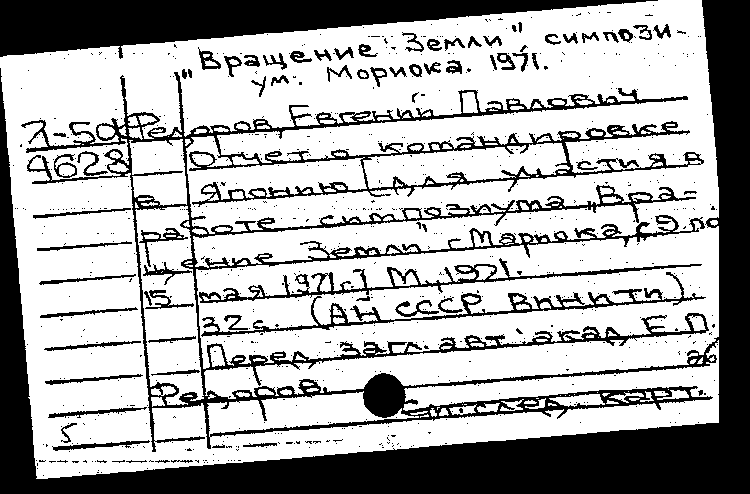 "Вращение Земли", симпози-
ум. Мориока. 1971.
Л-50 Федоров, Евгений Павлович
4628 Отчет о командировке
в Японию [для участия в
работе симпозиума „Вра-
щение Земли" г. Мариока, с 9 по
15 мая 1971 г.] М., 1971.
32 с. (АН СССР. ВИНИТИ).
Перед загл. авт: акад. Е.П.
Федоров.
См. след. карт.
5